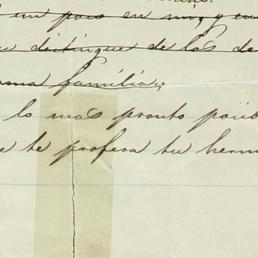 un pais en
distingue de los de
familia;
lo mas pronto posib
e te profesa tu herm